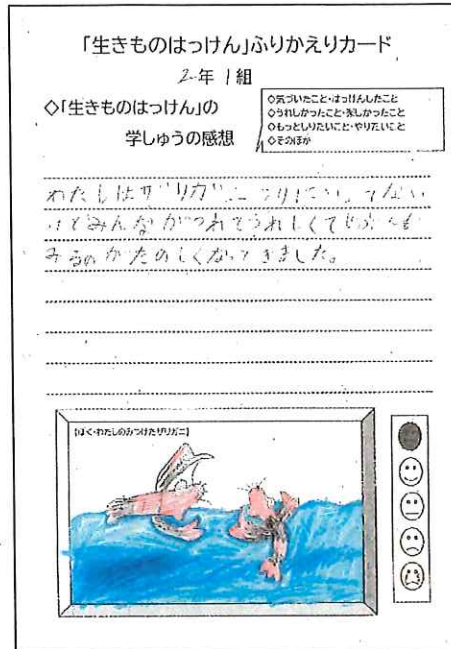 「生きものはっけん」ふりかえりカード
2年 1組
◇「生きものはっけん」の
学しゅうの感想
◇気づいたこと・はっけんしたこと
◇うれしかったこと・楽しかったこと
◇もっとしりたいこと・やりたいこと
◇そのほか
わたしはザリガニつりにいってない
けどみんながつれてうれしくてじぶんも
みるのがたのしくなってきました。
【ぼく・わたしのみつけたザリガニ】